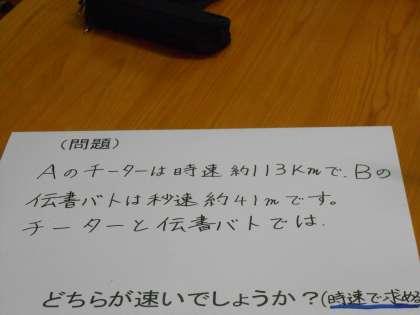 (問題)
Aのチーターは時速 約113Kmで、Bの
伝書バトは秒速 約41mです。
チーターと伝書バトでは、
どちらが速いでしょうか?(時速で求める